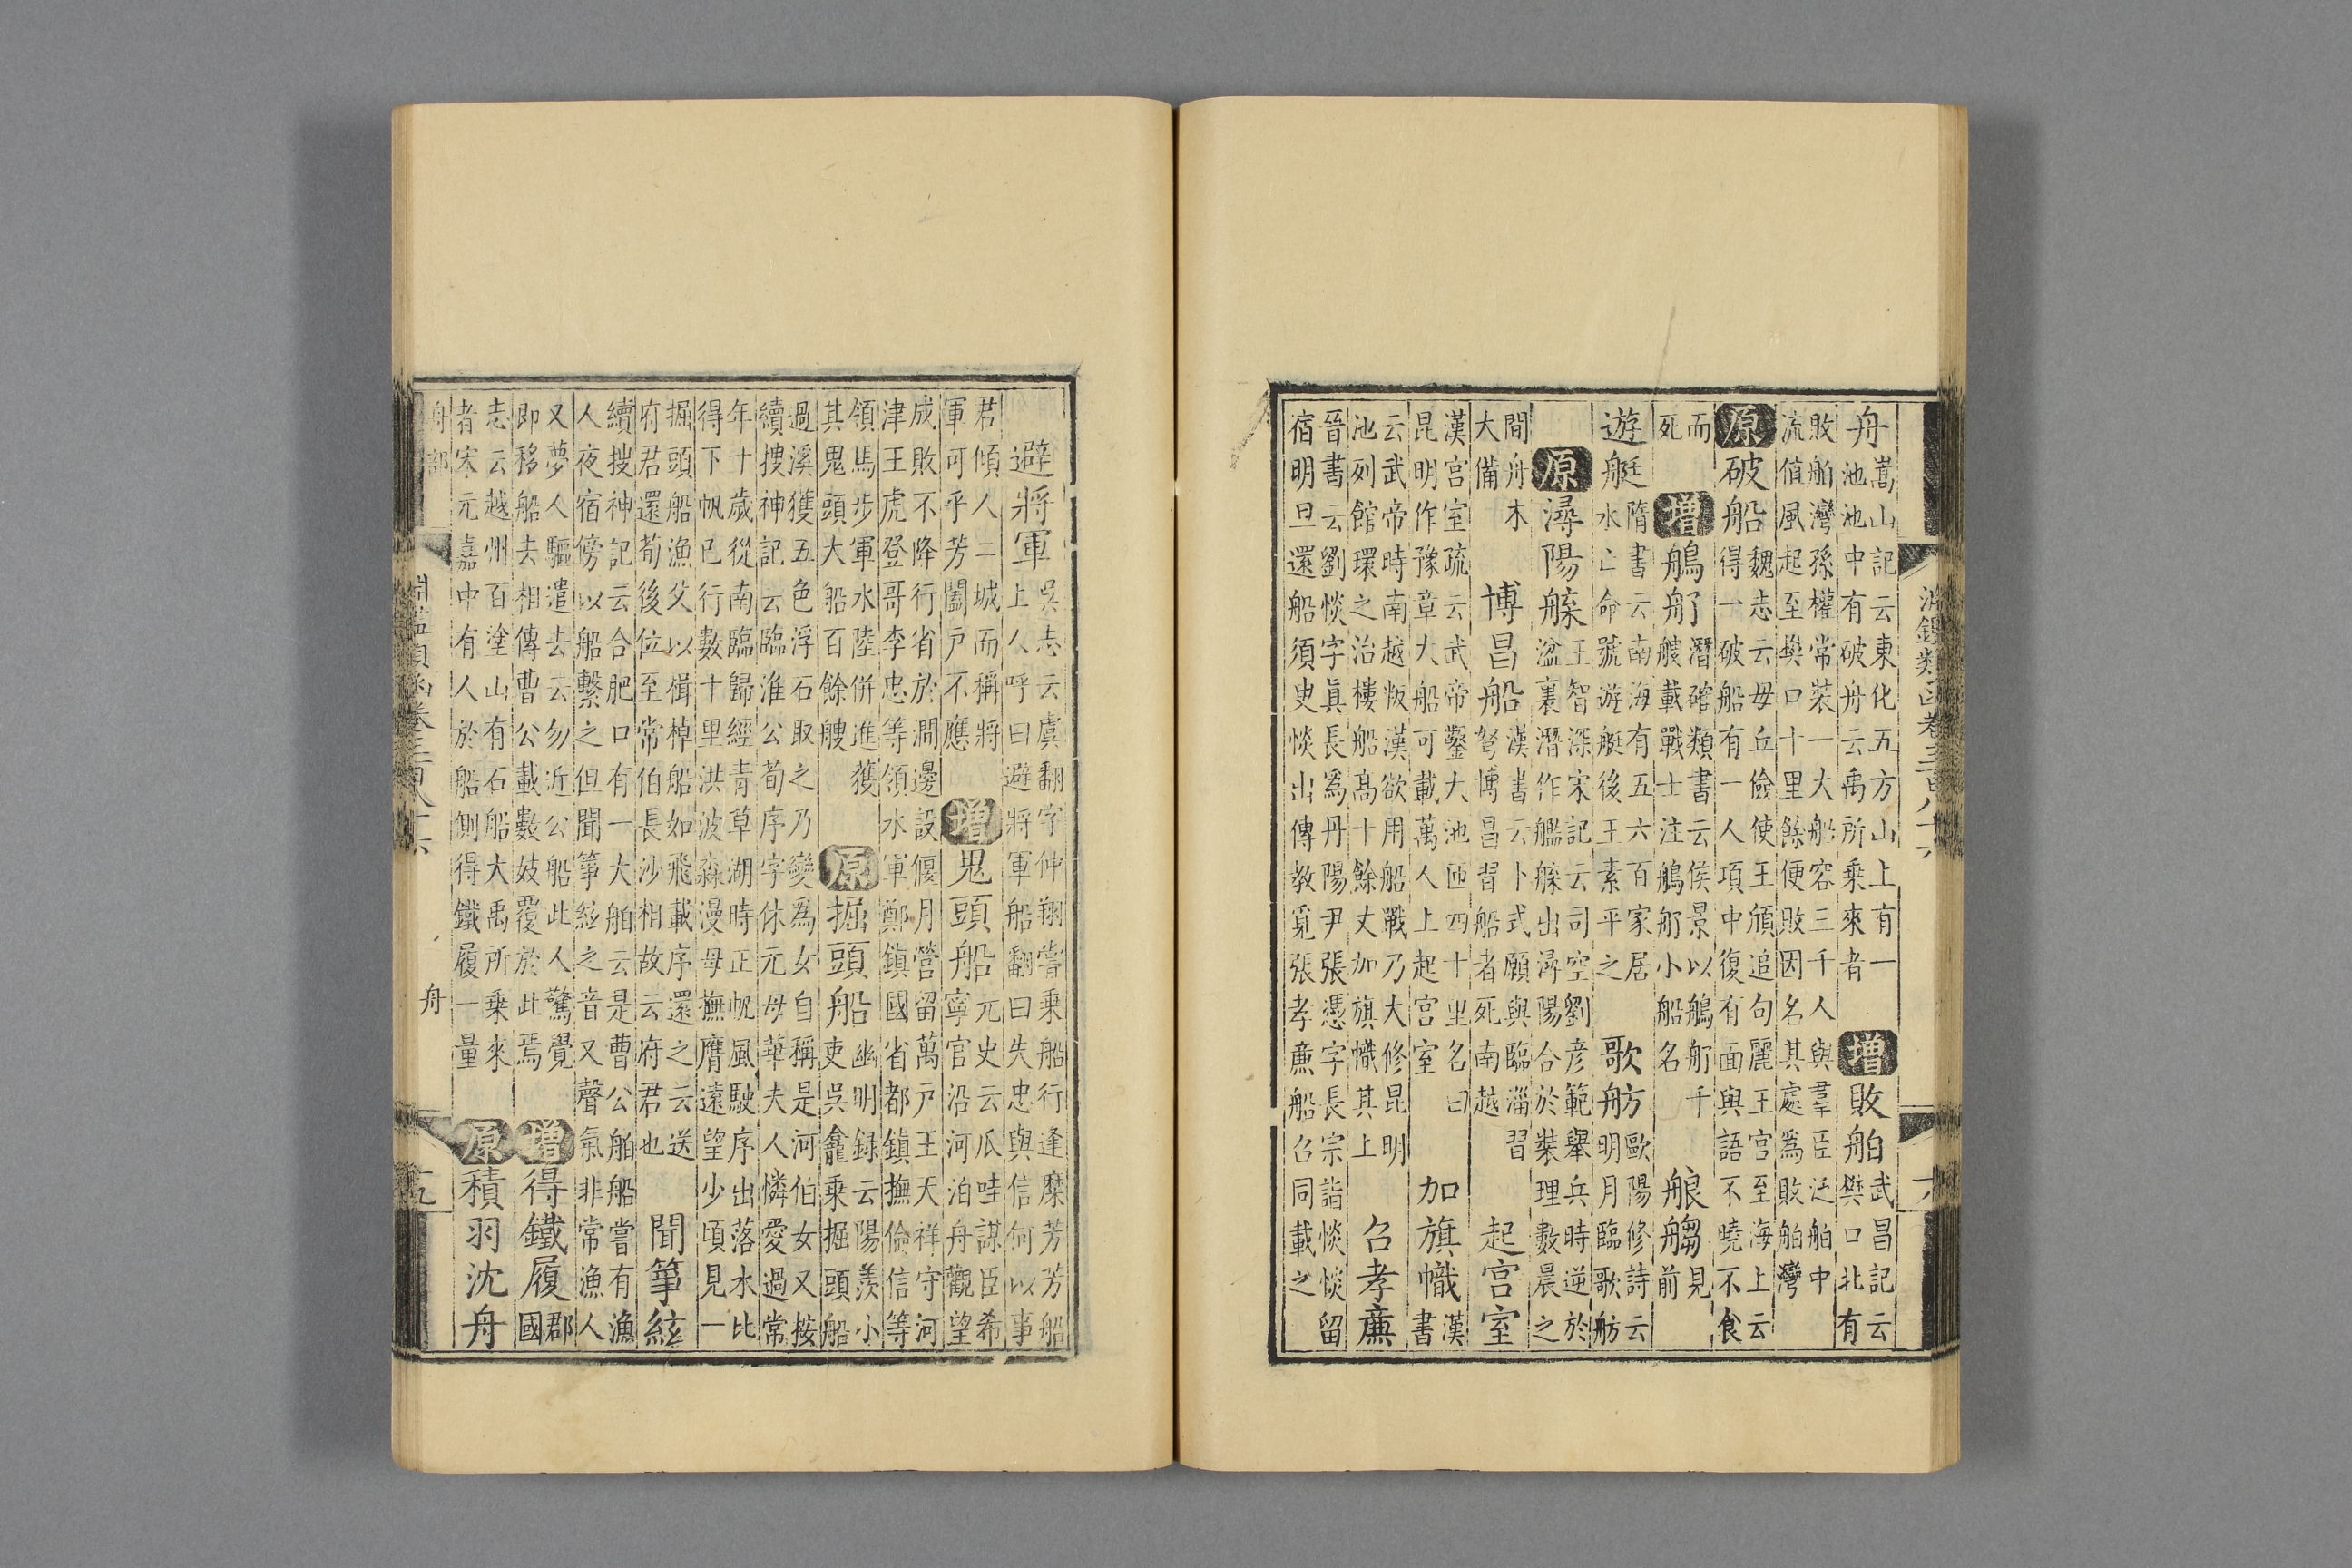 淵鑑類函卷三百八十六
舟嵩山記云東化五方山上有一池池中有破舟云禹所乘來者增敗舶武昌記云樊口北有
敗舶灣孫權常裝一大船容三千人與羣臣泛舶中流值風起至樊口十里餘便敗因名其處為敗舶灣
原破船魏志云毋丘儉使王頎追句麗王宮至海上云得一破船有一人項中復有面與語不曉不食
而死增鵃舠潛確類書云侯景以鵃舠千艘載戰士注鵃舠小船名艆䑳見前
遊艇隋書云南海有五六百家居水亡命號遊艇後王素平之歌舫歐陽修詩云明月臨歌舫
原潯陽艓王智深宋記云司空劉彥範舉兵時逆於湓裏潛作艦艓出潯陽合於裝理數晨之
間舟木大備博昌船漢書云卜式願與臨淄習弩博昌習船者死南越起宮室
漢宮室疏云武帝鑿大池匝四十里名曰昆明作豫章大船可載萬人上起宮室加旗幟漢書
云武帝時南越叛漢欲用船戰乃大修昆明池列館環之治樓船高十餘丈加旗幟其上召孝廉
晉書云劉惔字真長為丹陽尹張憑字長宗詣惔惔留宿明旦還船須史惔出傳教覓張孝廉船召同載之
避將軍吳志云虞翻字仲翔嘗乘船行逢糜芳芳船上人呼曰避將軍船翻曰失忠與信何以事
君傾人二城而稱將軍可乎芳闔戶不應增鬼頭船元史云瓜哇謀臣希寧官沿河泊舟觀望
成敗不降行省於澗邊設偃月營留萬戶王天祥守河津王虎登哥李忠等領水軍鄭鎮國省都鎮撫倫信等
領馬步軍水陸併進獲其鬼頭大船百餘艘原掘頭船幽明録云陽羨小吏吳龕乘掘頭船
過溪獲五色浮石取之乃變為女自稱是河伯女又按續搜神記云臨淮公荀序字休元母華夫人憐愛過常
年十歲從南臨歸經青草湖時正帆風駛序出落水比得下帆已行數十里洪波淼漫母撫膺遠望少頃見一
掘頭船漁父以楫棹船如飛載序還之云送府君還荀後位至常伯長沙相故云府君也聞箏絃
續搜神記云合肥口有一大舶云是曹公舶船嘗有漁人夜宿傍以船繫之但聞箏絃之音又聲氣非常漁人
又夢人驅遣去云勿近公船此人驚覺即移船去相傳曹公載數妓覆於此焉增得鐵履郡國
志云越州百塗山有石船大禹所乘來者宋元嘉中有人於船側得鐵履一量原積羽沈舟
舟部
淵鑑類函卷三百八十六 舟